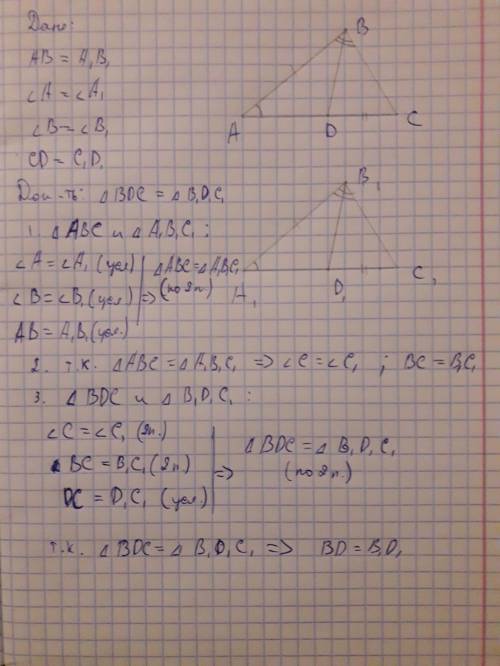 Дано:
AB = A₁B₁
∠A = ∠A₁
∠B = ∠B₁
CD = C₁D₁
B
A
D
C
Док-ть: △BDC = △B₁D₁C₁
B₁
A₁
D₁
C₁
1. △ABC и △A₁B₁C₁:
∠A = ∠A₁ (усл)
∠B = ∠B₁ (усл) =>
AB = A₁B₁ (усл.)
△ABC = △A₁B₁C₁
(по 2п.)
2. т.к. △ABC = △A₁B₁C₁ => ∠C = ∠C₁ ; BC = B₁C₁
3. △BDC и △B₁D₁C₁:
∠C = ∠C₁ (2п.)
BC = B₁C₁ (2п.) =>
DC = D₁C₁ (усл.)
△BDC = △B₁D₁C₁
(по 2п.)
т.к. △BDC = △B₁D₁C₁ => BD = B₁D₁